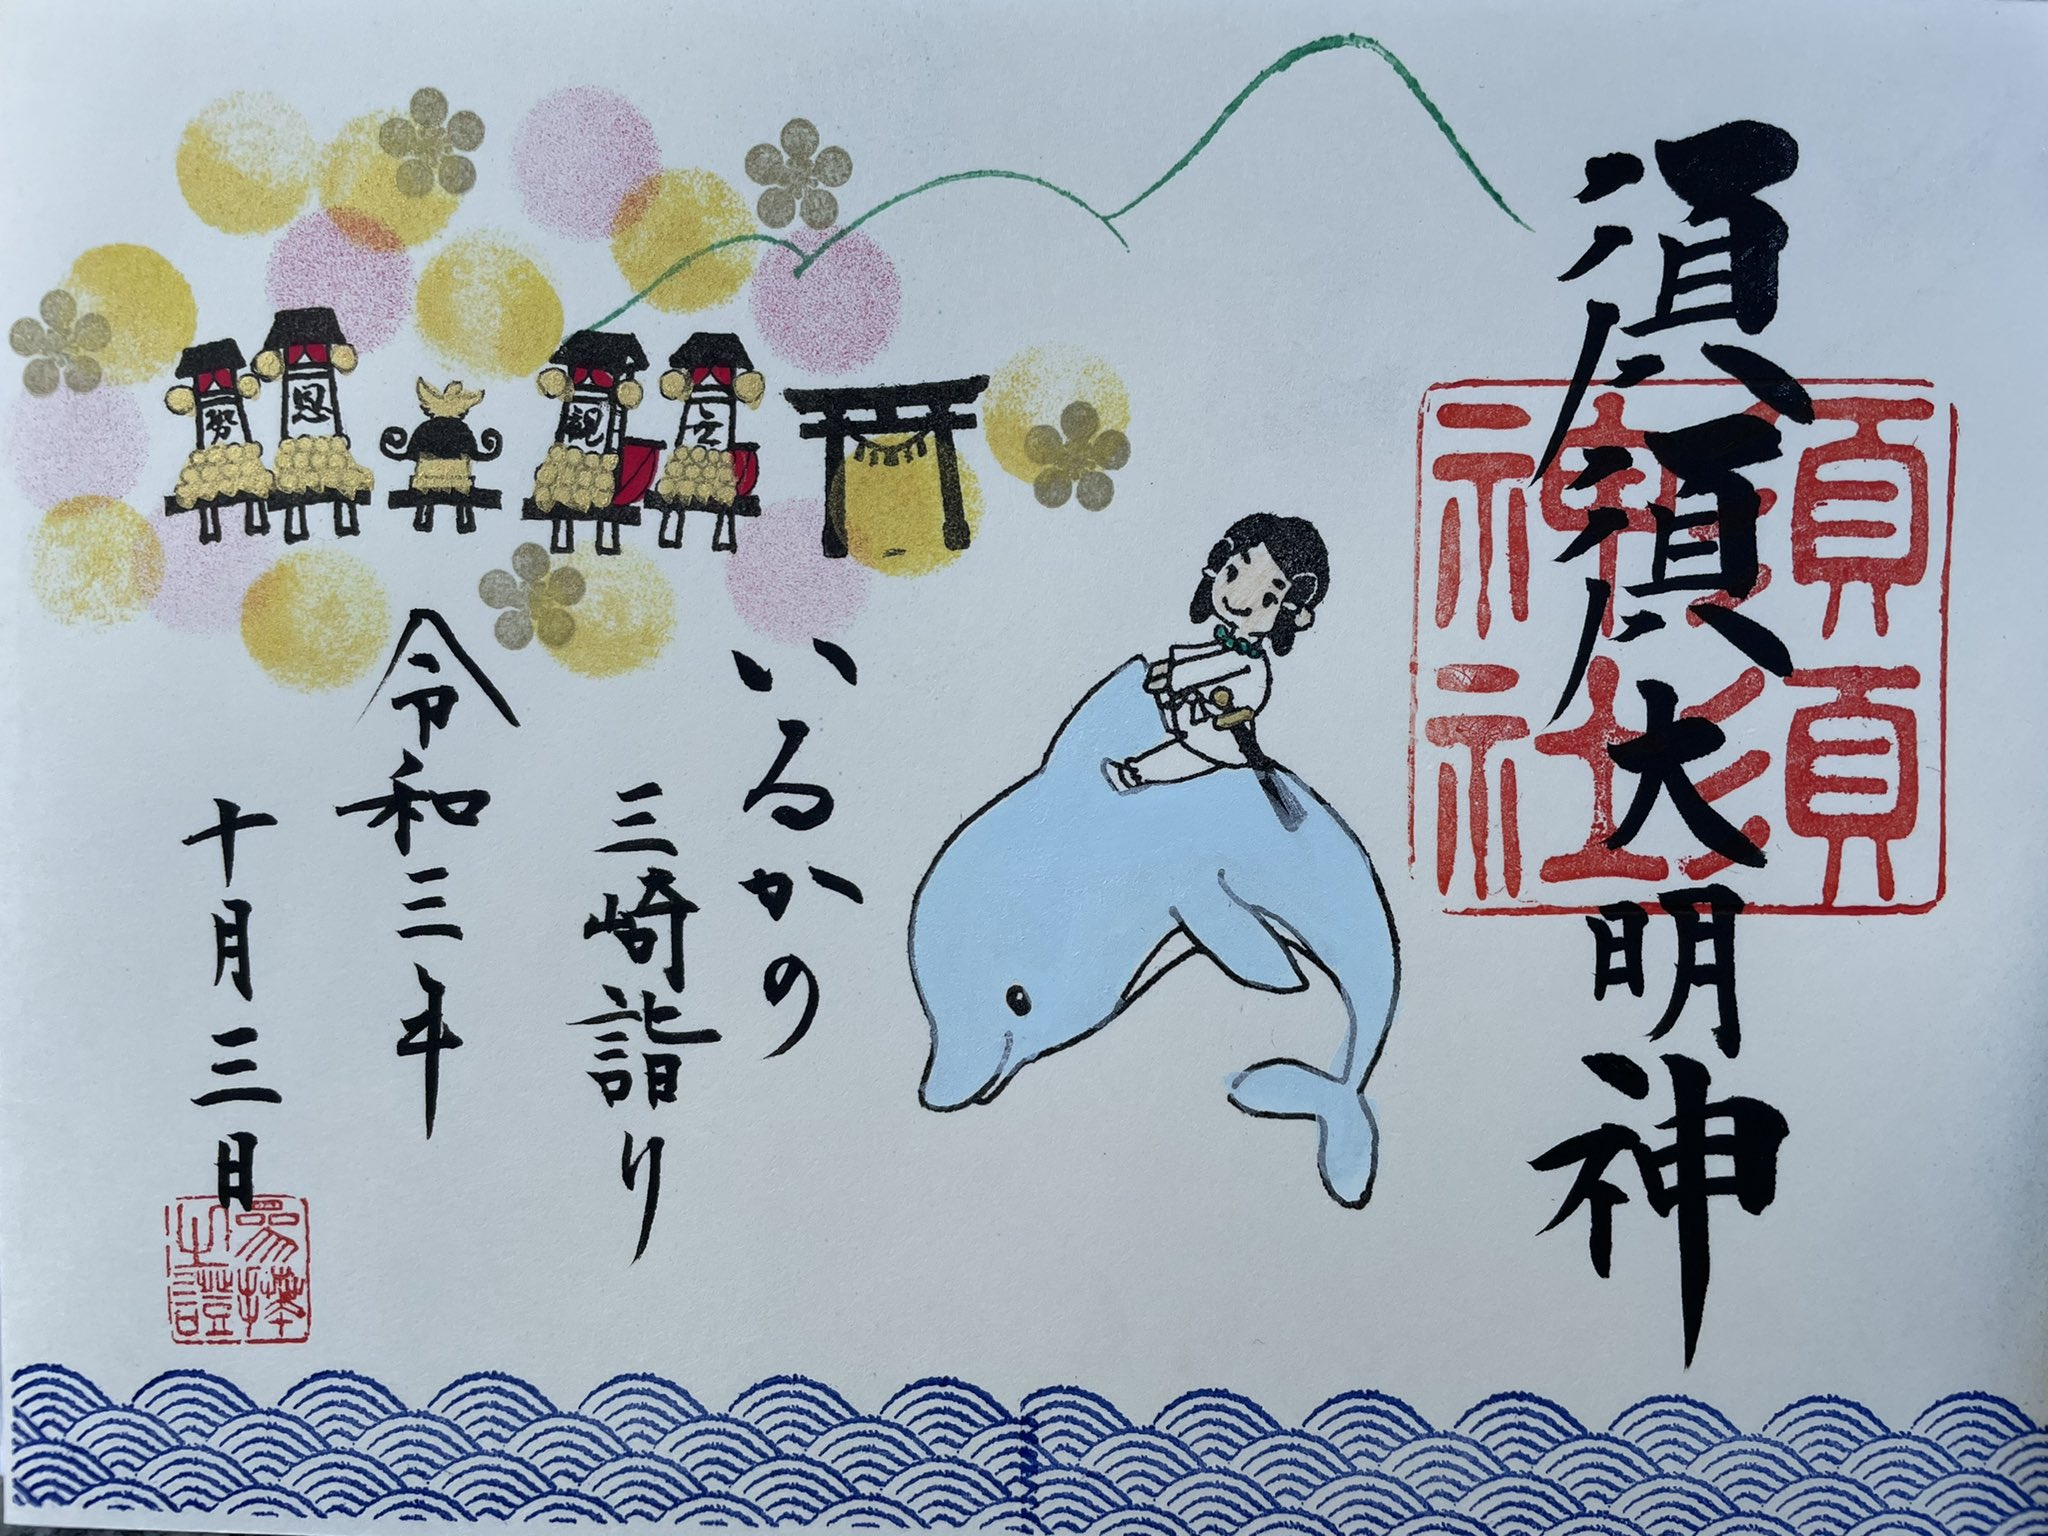 須須大明神
須須
神社
いるかの
三崎詣り
令和三年
十月三日
参拝
之證
観
恩